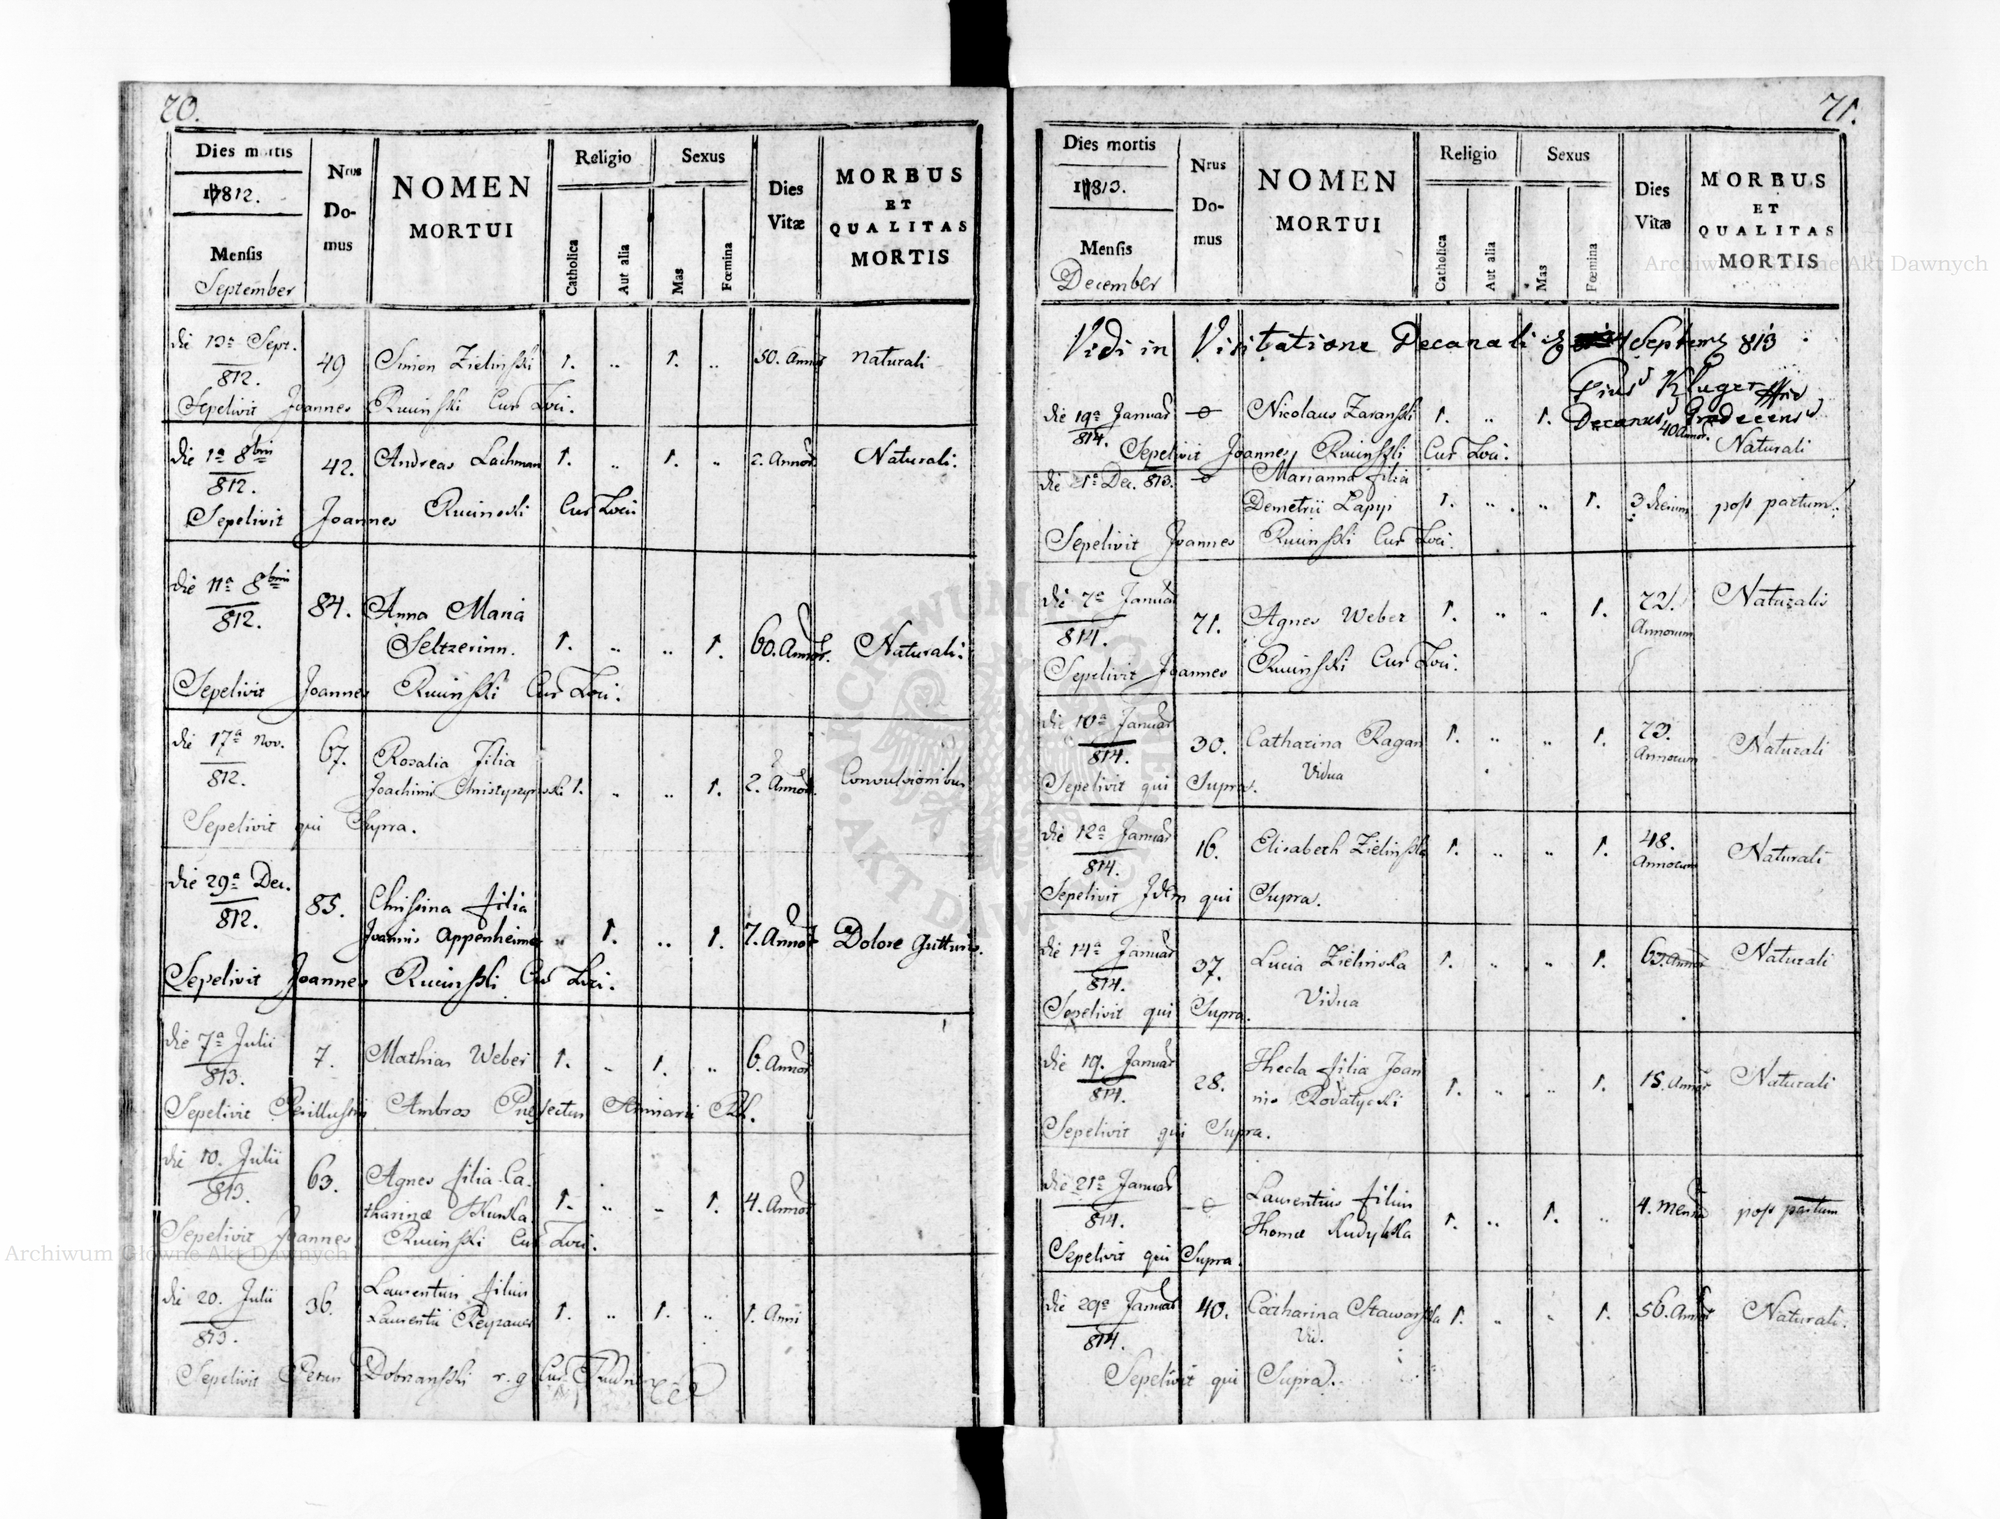 70.
Dies mortis
1812.
Mensis
September
Nrus Domus
NOMEN MORTUI
Religio
Catholica
Aut alia
Sexus
Mas
Fœmina
Dies Vitæ
MORBUS ET QUALITAS MORTIS
die 13a Sept. 812. 49 Simon Zielinski 1. „ 1. „ 50. Annor naturali
Sepelivit Joannes Rucinski Cur Loci.
die 1a 8bris 812. 42. Andreas Lachman 1. „ 1. „ 2. Annor. Naturali.
Sepelivit Joannes Rucinski Cur Loci
die 11a 8bris 812. 84. Anna Maria
Seltzerinn. 1. „ „ 1. 60. Annor. Naturali.
Sepelivit Joannes Rucinski Cur Loci.
die 17a Nov. 812. 67. Rosalia filia
Joachimi 1. „ „ 1. 2. Annor. Convulsionibus
Sepelivit qui Supra.
die 29a Dec. 812. 85. Christina filia
Joannis Appenheimer „ 1. „ 1. 7. Annor Dolore Gutturis.
Sepelivit Joannes Rucinski Cur Loci.
die 7a Julii 813. 7. Mathias Weber 1. „ 1. „ 6. Annor
Sepelivit Ambros
die 10. Julii 813. 63. Agnes filia Ca-
tharinæ 1. „ „ 1. 4. Annor
Sepelivit Joannes Rucinski Cur Loci.
die 20. Julii 813. 36. Laurentius filius
Laurentii 1. „ 1. „ 1. Anni
Sepelivit Dobrzanski r. g Cur.
71.
Dies mortis
1813.
Mensis
December
Nrus Domus
NOMEN MORTUI
Religio
Catholica
Aut alia
Sexus
Mas
Fœmina
Dies Vitæ
MORBUS ET QUALITAS MORTIS
Vidi in Visitatione Decanali Septemb 813
Pius Kluger
Decanus Grodecens
die 19a Januar 814. Nicolaus Zaranski 1. „ 1. 40 Annor. Naturali
Sepelivit Joannes Rucinski Cur Loci.
die 21a Dec. 813. Marianna filia
Demetrii Lapiji 1. „ „ 1. 3 dierum post partum.
Sepelivit Joannes Rucinski Cur Loci.
die 7a Januar 814. 71. Agnes Weber 1. „ „ 1. 72. Annorum Naturalis
Sepelivit Joannes Rucinski Cur Loci.
die 10a Januar 814. 30. Catharina Ragan
Vidua 1. „ „ 1. 73. Annorum Naturali
Sepelivit qui Supra.
die 12a Januar 814. 16. Elisabeth Zielinska 1. „ „ 1. 48. Annorum Naturali
Sepelivit Idem qui Supra.
die 14a Januar 814. 37. Lucia Zielinska
Vidua 1. „ „ 1. 63. Annor Naturali
Sepelivit qui Supra.
die 19. Januar 814. 28. Thecla filia Joan
nis Rodatycki 1. „ „ 1. 15. Annor Naturali
Sepelivit qui Supra.
die 21a Januar 814. Laurentius filius
Thomæ Rudylska 1. „ 1. „ 4. Mens post partum
Sepelivit qui Supra.
die 29a Januar 814. 40. Catharina Stawarska
Vid. 1. „ „ 1. 56. Annor Naturali.
Sepelivit qui Supra.
Archiwum Główne Akt Dawnych
Archiwum Główne Akt Dawnych
ARCHIWUM GŁÓWNE AKT DAWNYCH